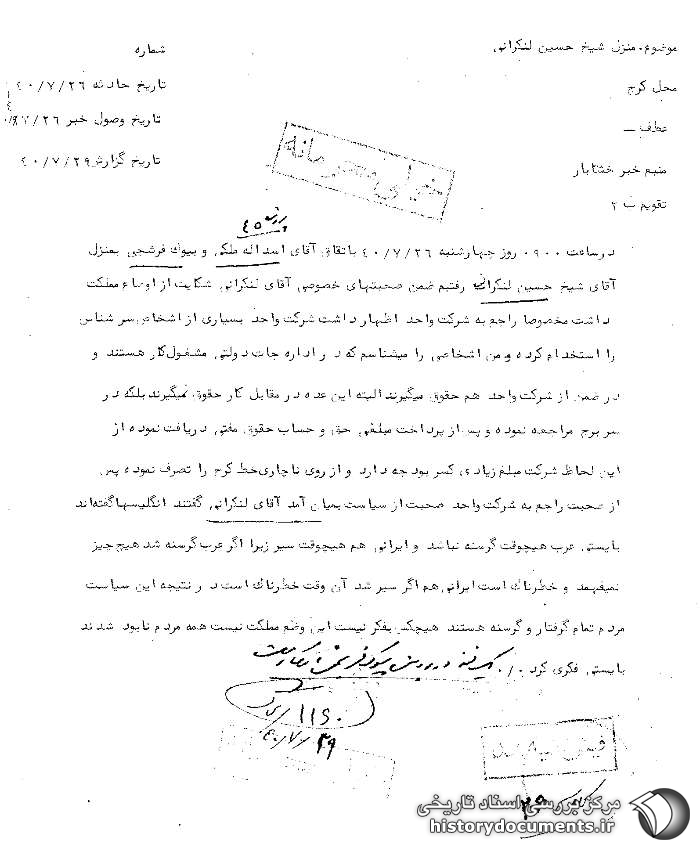 موضوع. منزل شیخ حسین لنکرانی
شماره
محل کرج
تاریخ حادثه ۴۰/۷/۲۶
عطف ــ
تاریخ وصول خبر
منبع خبر خشتابار
تاریخ گزارش ۴۰/۷/۲۹
تقویم ب ۲
خیلی محرمانه
۴۵
در ساعت ۰۹۰۰ روز چهارشنبه ۴۰/۷/۲۶ باتفاق آقای اسداله ملکی و بیوک فرشچی بمنزل
آقای شیخ حسین لنکرانی رفتیم ضمن صحبتهای خصوصی آقای لنکرانی شکایت از اوضاع مملکت
داشت مخصوصا راجع به شرکت واحد اظهار داشت شرکت واحد بسیاری از اشخاص سرشناس
را استخدام کرده و من اشخاصی را میشناسم که در اداره جات دولتی مشغول کار هستند و
در ضمن از شرکت واحد هم حقوق میگیرند البته این عده در مقابل کار حقوق نمیگیرند بلکه در
سر برج مراجعه نموده و پس از پرداخت مبلغی حق و حساب حقوق مفتی دریافت نموده از
این لحاظ شرکت مبلغ زیادی کسر بودجه دارد و از روی ناچاری خط کرج را تصرف نموده پس
از صحبت راجع به شرکت واحد صحبت از سیاست بمیان آمد آقای لنکرانی گفتند انگلیسها گفته‌اند
بایستی عرب هیچوقت گرسنه نباشد و ایرانی هم هیچوقت سیر زیرا اگر عرب گرسنه شد هیچ چیز
نمیفهمد و خطرناک است ایرانی هم اگر سیر شد آن وقت خطرناک است در نتیجه این سیاست
مردم تمام گرفتار و گرسنه هستند هیچکس بفکر نیست این وضع مملکت نیست همه مردم نابود شدند
بایستی فکری کرد ۰/۰
۴۰/۷/۲۹
مرکز بررسی اسناد تاریخی
historydocuments.ir